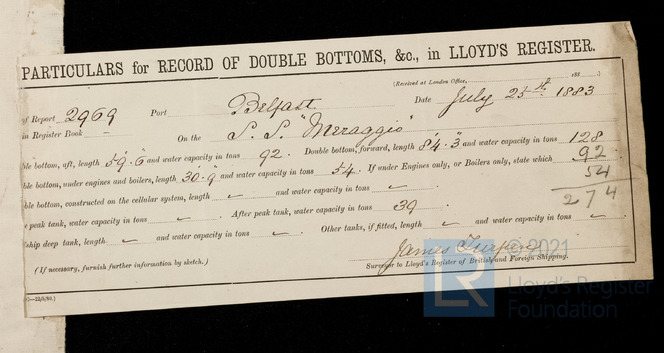 PARTICULARS for RECORD OF DOUBLE BOTTOMS, &c., in LLOYD'S REGISTER.
(Received at London Office, 188 )
of Report 2969 Port Belfast Date July 25th 1883
in Register Book - On the S.S. "Meraggio"
ble bottom, aft, length 59'.6" and water capacity in tons 92. Double bottom, forward, length 84'.3" and water capacity in tons 128
ble bottom, under engines and boilers, length 30'.9" and water capacity in tons 54. If under Engines only, or Boilers only, state which 92
54
ble bottom, constructed on the cellular system, length and water capacity in tons 274
e peak tank, water capacity in tons . After peak tank, water capacity in tons 39 .
ship deep tank, length and water capacity in tons . Other tanks, if fitted, length and water capacity in tons .
(If necessary, furnish further information by sketch.)
James
Surveyor to Lloyd's Register of British and Foreign Shipping.
©2021
LR
Lloyd's Register
Foundation